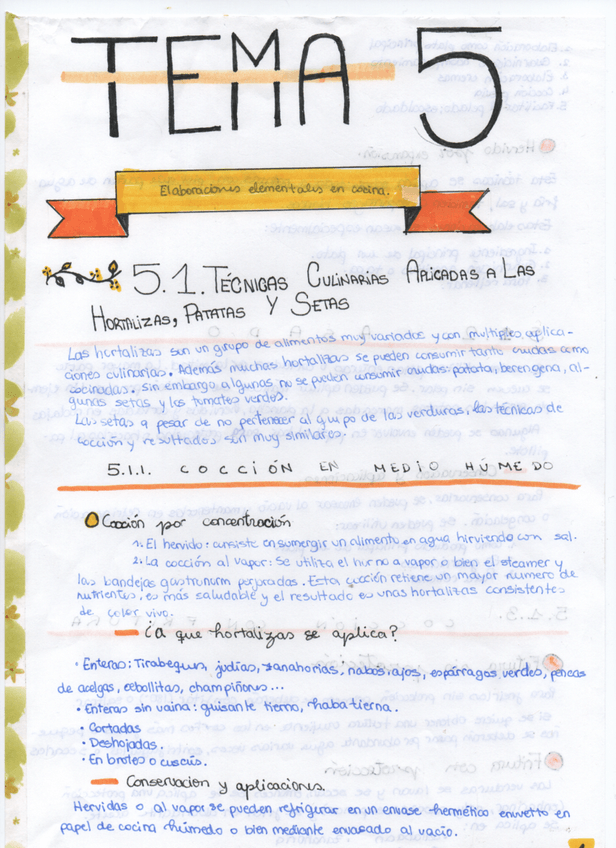 TEMA 5
Elaboraciones elementales en cocina.
5.1. TÉCNICAS CULINARIAS APLICADAS A LAS
HORTALIZAS, PATATAS Y SETAS
Las hortalizas son un grupo de alimentos muy variados y con multiples aplica-
ciones culinarias. Además muchas hortalizas se pueden consumir tanto crudas como
cocinadas. Sin embargo algunas no se pueden consumir crudas: patata, berengena, al-
gunas setas y los tomates verdes.
Las setas a pesar de no pertenecer al grupo de las verduras, las técnicas de
cocción y resultados son muy similares.
5.1.1. COCCIÓN EN MEDIO HÚMEDO
Cocción por concentración
1. El hervido: consiste en sumergir un alimento en agua hirviendo con sal.
2. La cocción al vapor: Se utiliza el horno a vapor o bien el steamer y
las bandejas gastronorm perforadas. Esta cocción retiene un mayor numero de
nutrientes, es más saludable y el resultado es unas hortalizas consistentes
de color vivo.
¿A que hortalizas se aplica?
• Enteras: Tirabeques, judías, zanahorias, nabos, ajos, espárragos verdes, pencas
de acelgas, cebollitas, champiñones...
• Enteras sin vaina: guisante tierno, haba tierna.
• Cortadas
• Deshojadas.
• En brotes o cuscús.
Conservación y aplicaciones.
Hervidas o al vapor se pueden refrigerar en un envase hermético envuelto en
papel de cocina húmedo o bien mediante envasado al vacío.